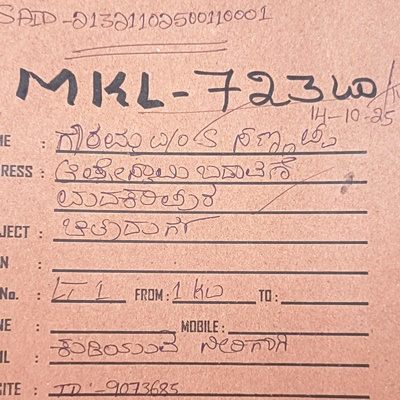 SAID-2132110250011 0001
MKL-72340
14-10-25
ME : ಗೌರಮ್ಮ W/o ಸಣ್ಣಪ್ಪ
RESS : ಬಡಾವಣೆ
JECT : ಚಿತ್ರದುರ್ಗ
N :
No. : LT 1 FROM : 1 KW TO :
NE : MOBILE :
IL : ಕುಡಿಯುವ ನೀರಿಗಾಗಿ
SITE : ID :-9073685